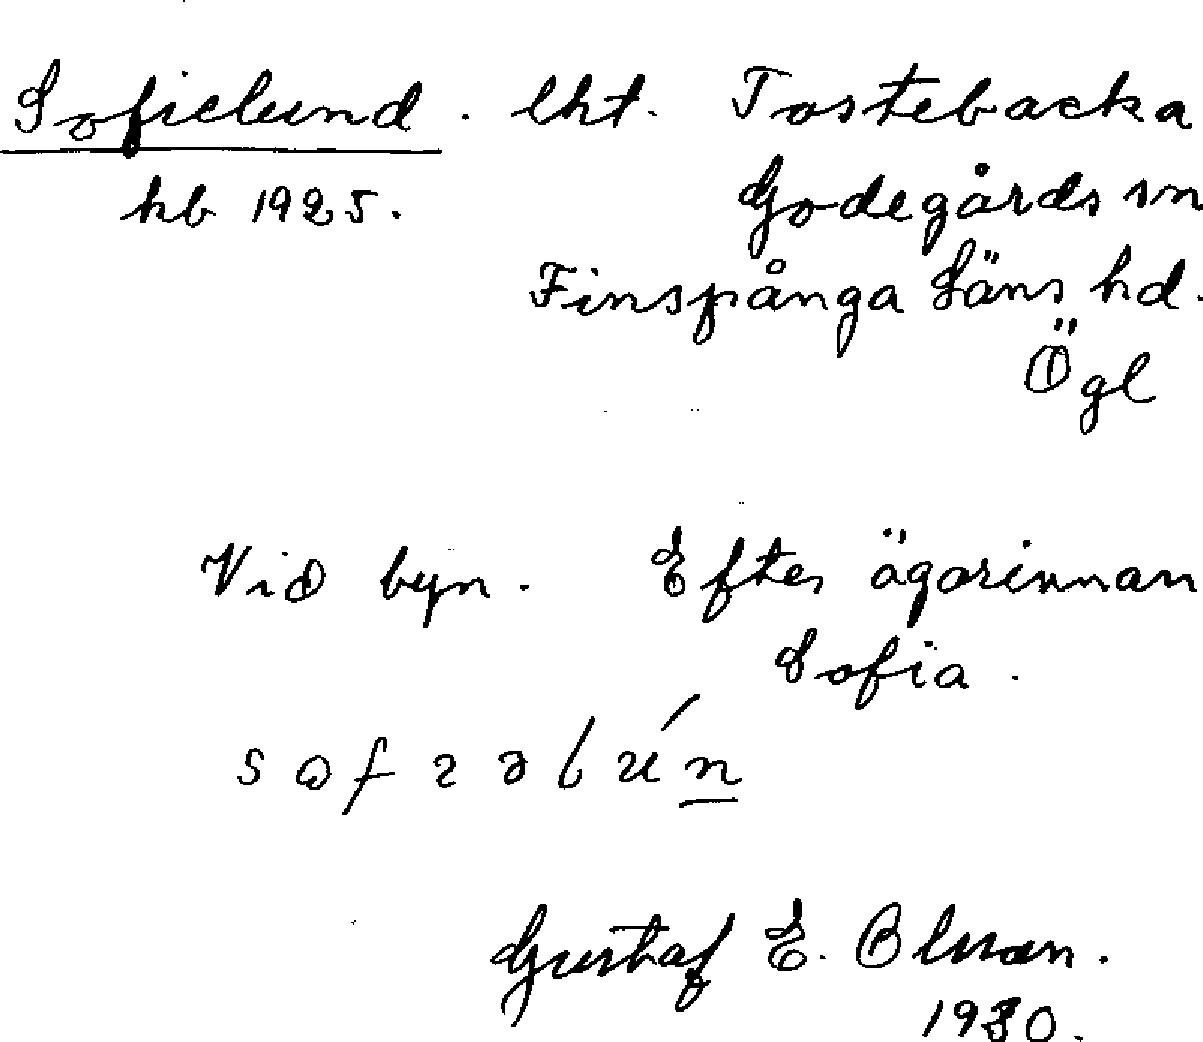 Sofielund. lht. Tostebacka
hb 1925. Godegårds sn
Finspånga Läns hd.
Ögl
Vid byn. Efter ägarinnan
Sofia.
Gustaf E. Olsson.
1930.